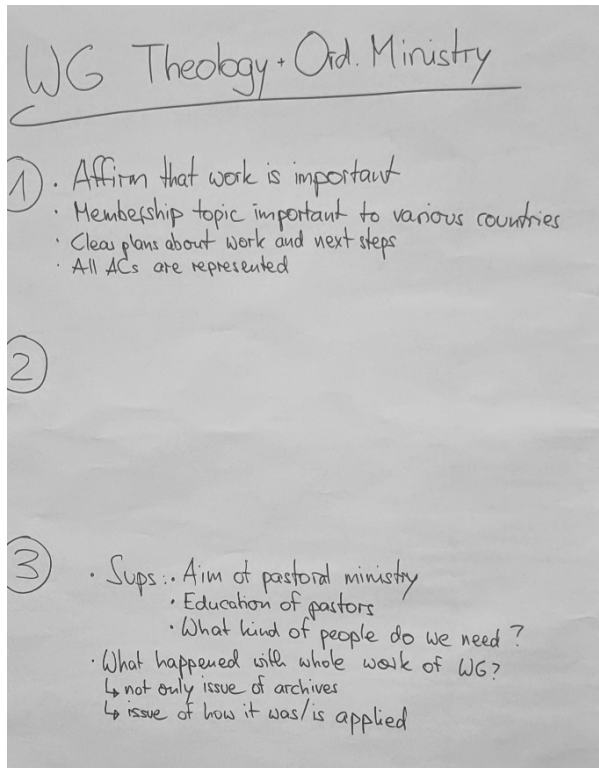 WG Theology + Ord. Ministry
1 · Affirm that work is important
· Membership topic important to various countries
· Clear plans about work and next steps
· All ACs are represented
2
3
· Sups: · Aim of pastoral ministry
· Education of pastors
· What kind of people do we need?
· What happened with whole work of WG?
↳ not only issue of archives
↳ issue of how it was/is applied